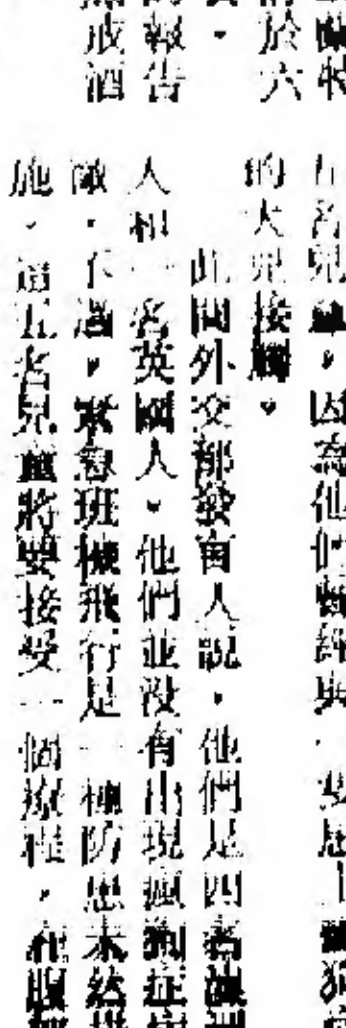 蘭特
於六
。
的報告
戒酒
五名兒童，因為他們曾經與一隻患上瘋狗症
的犬兒接觸。
此間外交部發言人說，他們是四名澳洲
人和一名英國人。他們並沒有出現瘋狗症病
徵。不過，緊急班機飛行是一種防患未然措
施。這五名兒童將要接受一個療程，在腹部